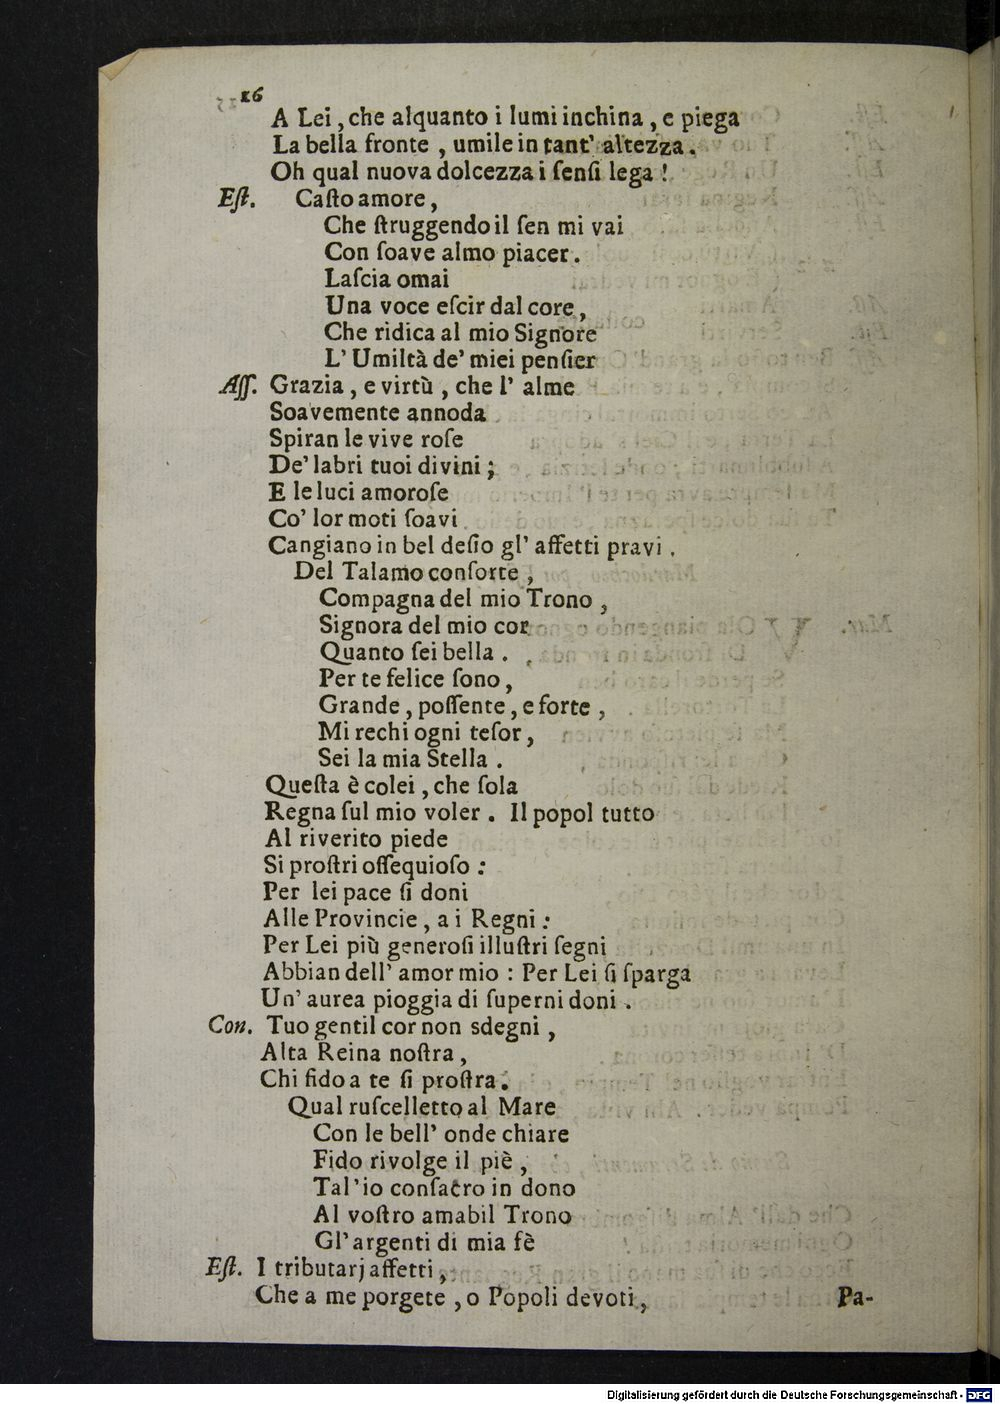 16
A Lei, che alquanto i lumi inchina, e piega
La bella fronte, umile in tant' altezza.
Oh qual nuova dolcezza i ſenſi lega!
Eſt. Caſto amore,
Che ſtruggendo il ſen mi vai
Con ſoave almo piacer.
Laſcia omai
Una voce eſcir dal core,
Che ridica al mio Signore
L' Umiltà de' miei penſier
Aſſ. Grazia, e virtù, che l' alme
Soavemente annoda
Spiran le vive roſe
De' labri tuoi divini;
E le luci amoroſe
Co' lor moti ſoavi
Cangiano in bel deſio gl' affetti pravi.
Del Talamo conſorte,
Compagna del mio Trono,
Signora del mio cor
Quanto ſei bella.
Per te felice ſono,
Grande, poſſente, e forte,
Mi rechi ogni teſor,
Sei la mia Stella.
Queſta è colei, che ſola
Regna ſul mio voler. Il popol tutto
Al riverito piede
Si proſtri oſſequioſo:
Per lei pace ſi doni
Alle Provincie, a i Regni:
Per Lei più generoſi illuſtri ſegni
Abbian dell' amor mio: Per Lei ſi ſparga
Un' aurea pioggia di ſuperni doni.
Con. Tuo gentil cor non sdegni,
Alta Reina noſtra,
Chi fido a te ſi proſtra.
Qual ruſcelletto al Mare
Con le bell' onde chiare
Fido rivolge il piè,
Tal' io conſacro in dono
Al voſtro amabil Trono
Gl' argenti di mia fè
Eſt. I tributarj affetti,
Che a me porgete, o Popoli devoti,
Pa-
Digitalisierung gefördert durch die Deutsche Forschungsgemeinschaft - DFG